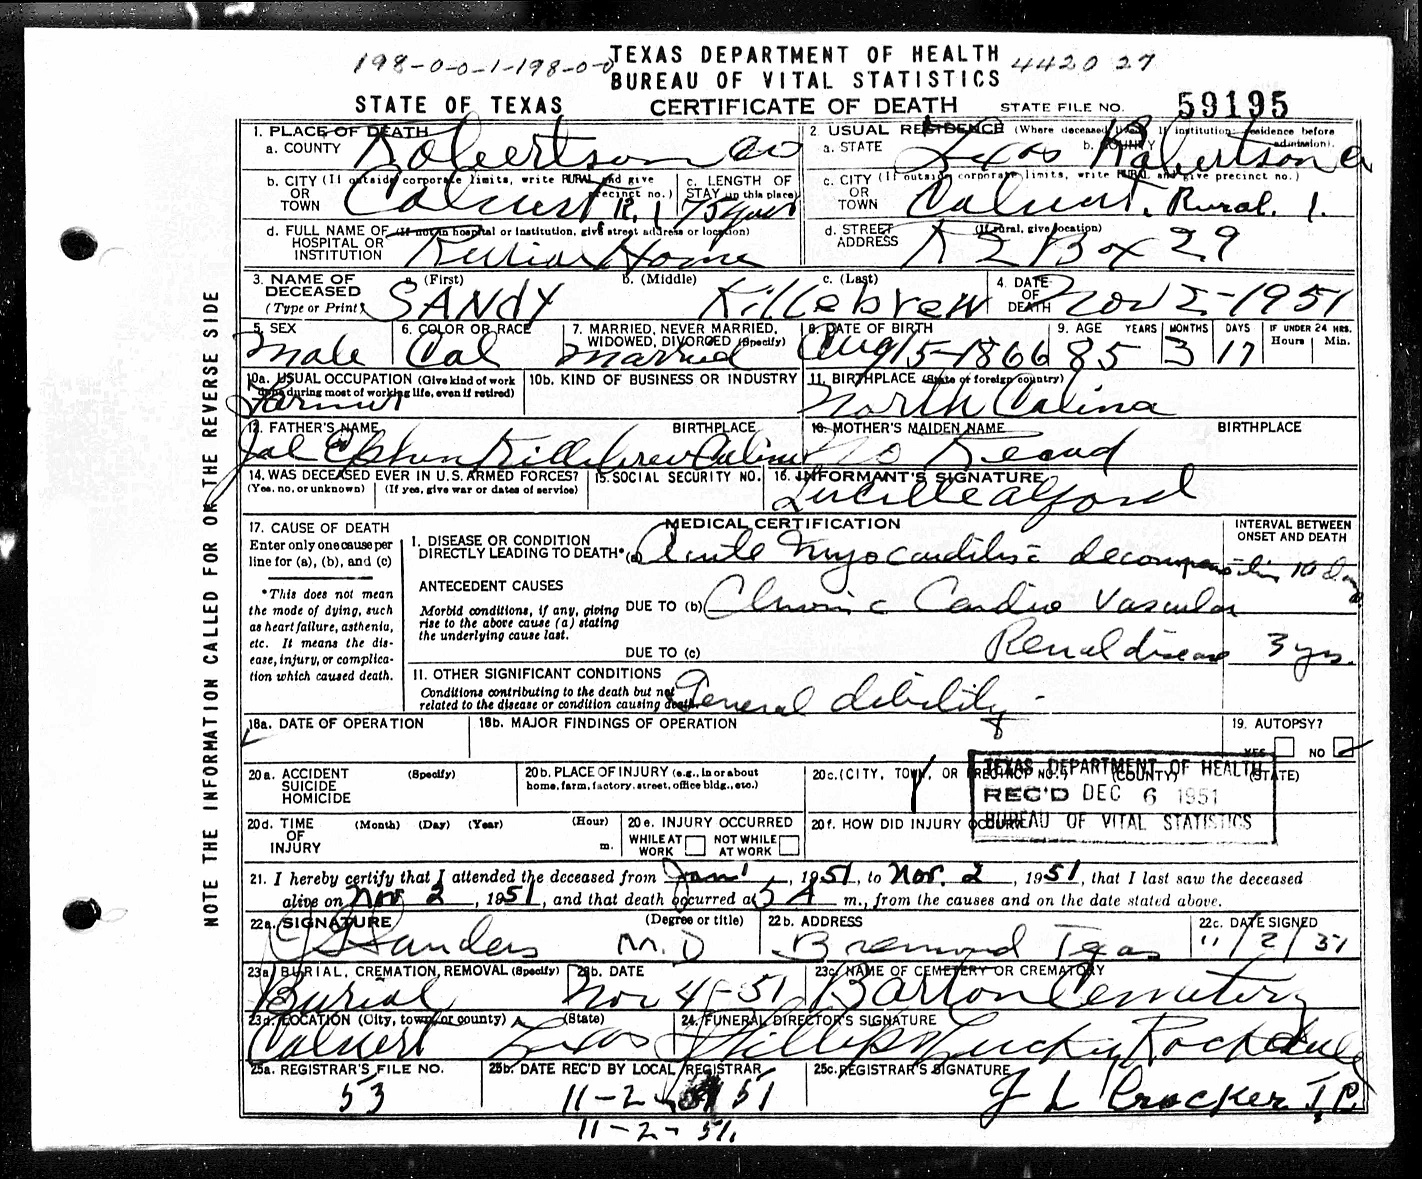 198-0-0-1-198-0-0
TEXAS DEPARTMENT OF HEALTH
BUREAU OF VITAL STATISTICS
442027
STATE OF TEXAS
CERTIFICATE OF DEATH
STATE FILE NO. 59195
1. PLACE OF DEATH
a. COUNTY Robertson co
2. USUAL RESIDENCE (Where deceased lived. If institution: residence before admission).
a. STATE Texas b. COUNTY Robertson Co
b. CITY (If outside corporate limits, write RURAL and give precinct no.)
OR
TOWN Calvert, R. 1
c. LENGTH OF
STAY (in this place)
c. CITY (If outside corporate limits, write RURAL and give precinct no.)
OR
TOWN Calvert, Rural. 1.
d. FULL NAME OF (If not in hospital or institution, give street address or location)
HOSPITAL OR
INSTITUTION Home
d. STREET (If rural, give location)
ADDRESS R 2 Box 29
3. NAME OF DECEASED
(Type or Print)
a. (First) SANDY
b. (Middle)
c. (Last) Killebrew
4. DATE OF DEATH Nov 2-1951
5. SEX
Male
6. COLOR OR RACE
Col
7. MARRIED, NEVER MARRIED,
WIDOWED, DIVORCED (Specify)
Married
8. DATE OF BIRTH
Aug 15-1866
9. AGE YEARS MONTHS DAYS IF UNDER 24 HRS.
Hours Min.
85 3 17
10a. USUAL OCCUPATION (Give kind of work
done during most of working life, even if retired)
Farmer
10b. KIND OF BUSINESS OR INDUSTRY
11. BIRTHPLACE (State or foreign country)
North Calina
12. FATHER'S NAME BIRTHPLACE
Killebrew Calina
13. MOTHER'S MAIDEN NAME BIRTHPLACE
14. WAS DECEASED EVER IN U.S. ARMED FORCES?
(Yes, no, or unknown) (If yes, give war or dates of service)
15. SOCIAL SECURITY NO.
16. INFORMANT'S SIGNATURE
Lucille Alford
17. CAUSE OF DEATH
Enter only one cause per
line for (a), (b), and (c)
*This does not mean
the mode of dying, such
as heart failure, asthenia,
etc. It means the dis-
ease, injury, or complica-
tion which caused death.
MEDICAL CERTIFICATION
INTERVAL BETWEEN
ONSET AND DEATH
I. DISEASE OR CONDITION
DIRECTLY LEADING TO DEATH* (a) Acute Myocarditis c decompensation 10 days
ANTECEDENT CAUSES
Morbid conditions, if any, giving
rise to the above cause (a) stating
the underlying cause last.
DUE TO (b) Chronic Cardio Vascular
DUE TO (c) Renal disease 3 yrs.
II. OTHER SIGNIFICANT CONDITIONS
Conditions contributing to the death but not
related to the disease or condition causing death.
General debility
18a. DATE OF OPERATION
18b. MAJOR FINDINGS OF OPERATION
19. AUTOPSY?
YES NO
20a. ACCIDENT (Specify)
SUICIDE
HOMICIDE
20b. PLACE OF INJURY (e.g., in or about
home, farm, factory, street, office bldg., etc.)
20c. (CITY, TOWN, OR PRECINCT NO.) (COUNTY) (STATE)
TEXAS DEPARTMENT OF HEALTH
REC'D DEC 6 1951
BUREAU OF VITAL STATISTICS
20d. TIME (Month) (Day) (Year) (Hour)
OF
INJURY m.
20e. INJURY OCCURRED
WHILE AT WORK NOT WHILE AT WORK
20f. HOW DID INJURY OCCUR?
21. I hereby certify that I attended the deceased from Jan 1, 1951, to Nov. 2, 1951, that I last saw the deceased
alive on Nov 2, 1951, and that death occurred at 5 A m., from the causes and on the date stated above.
22a. SIGNATURE (Degree or title)
Sanders M.D
22b. ADDRESS
Bremond Texas
22c. DATE SIGNED
11/2/51
23a. BURIAL, CREMATION, REMOVAL (Specify)
Burial
23b. DATE
Nov 4-51
23c. NAME OF CEMETERY OR CREMATORY
Barton Cemetery
23d. LOCATION (City, town, or county) (State)
Calvert Texas
24. FUNERAL DIRECTOR'S SIGNATURE
Phillips & Luckey Rockdale
25a. REGISTRAR'S FILE NO.
53
25b. DATE REC'D BY LOCAL REGISTRAR
11-2-51
25c. REGISTRAR'S SIGNATURE
J L Crocker J.P.
11-2-51.
NOTE THE INFORMATION CALLED FOR ON THE REVERSE SIDE